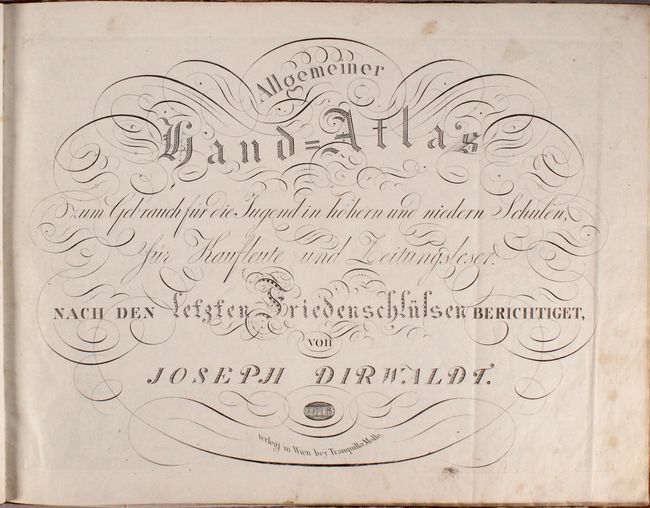 Allgemeiner
Hand=Atlas
zum Gebrauch für die Jugend in höhern und niedern Schulen,
für Kaufleute und Zeitungsleser.
NACH DEN letzten Friedenschlüssen BERICHTIGET,
von
JOSEPH DIRWALDT.
verlegt in Wien bey Tranquillo Mollo.